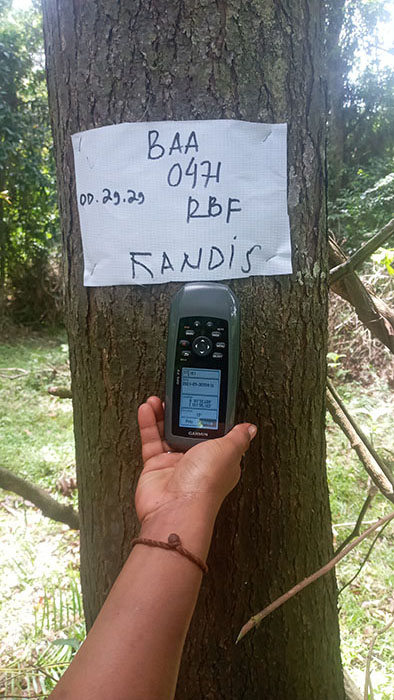 BAA
0471
OD.29.29
RBF
KANDIS
GARMIN